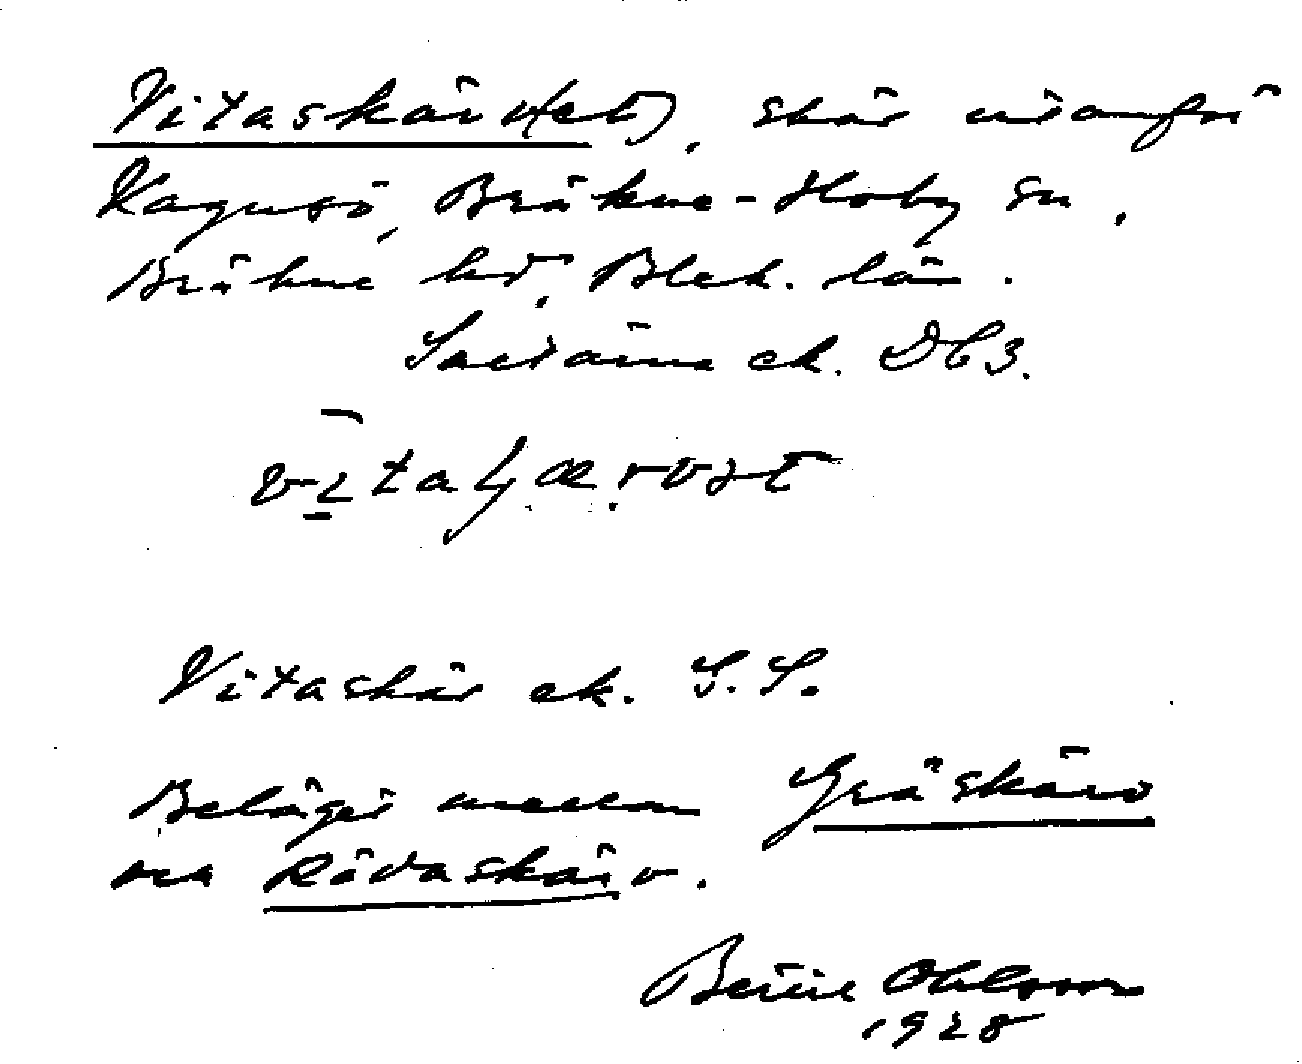 Vitaskär(et), skär utanför
Vagnsö, Bräkne-Hoby sn,
Bräkne hd, Blek. län.
ek. DC3.
Vitaskär ek. S.S.
Beläget mellan Gråskärv
och Rödaskärv.
Bertil Ohlsson
1928